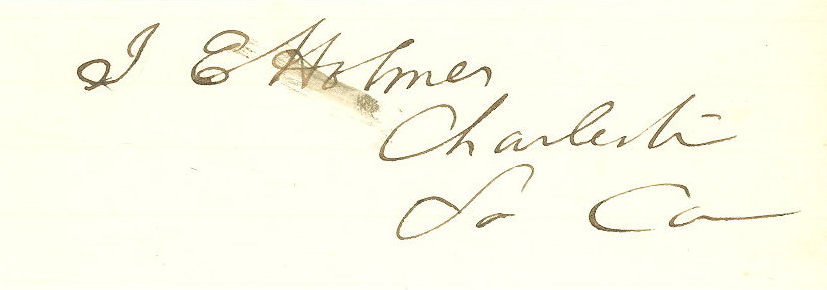 I E Holmes
Charleston
So Ca